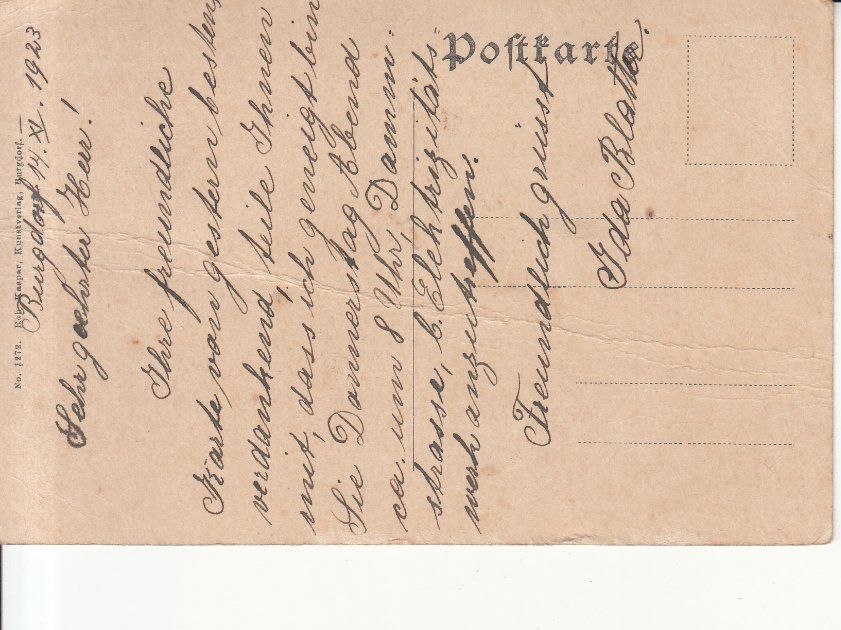 Postkarte
No. 1272. Rob. Kaspar, Kunstverlag, Burgdorf.
Burgdorf. 14. XI. 1923
Sehr geehrter Herr!
Ihre freundliche
Karte von gestern bestens
verdankend, teile Ihnen
mit, dass ich geneigt bin
Sie Donnerstag Abend
ca. um 8 Uhr, Damm-
strasse, b. Elektrizitäts-
werk anzutreffen.
Freundlich grüsst
Ida Blatter.